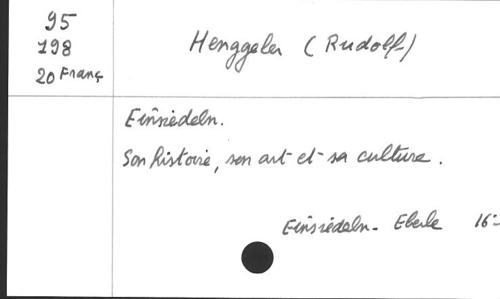 95
198
20 Franç
Henggeler (Rudolf)
Einsiedeln.
Son histoire, son art et sa culture.
Einsiedeln. Eberle 16º